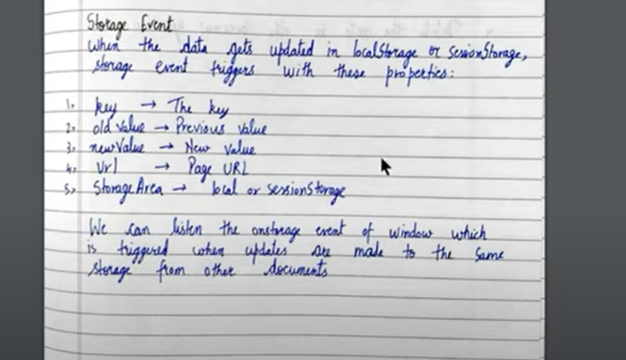 Storage Event
When the data gets updated in localStorage or sessionStorage,
storage event triggers with these properties:
1. key → The key
2. old value → Previous value
3. newValue → New value
4. Url → Page URL
5. StorageArea → local or sessionStorage
We can listen the onstorage event of window which
is triggered when updates are made to the same
storage from other documents